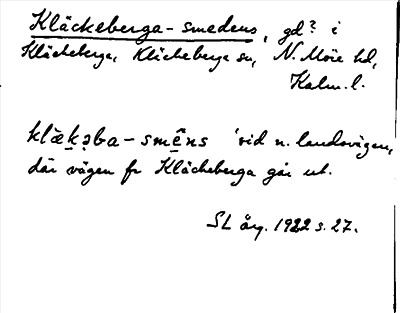 Kläckeberga-smedens, gd? i
Kläckeberga, Kläckeberga sn, N. Möre hd,
Kalm. l.
klækəba-smêns 'vid n. landsvägen,
där vägen fr Kläckeberga går ut.
SL årg. 1922 s. 27.